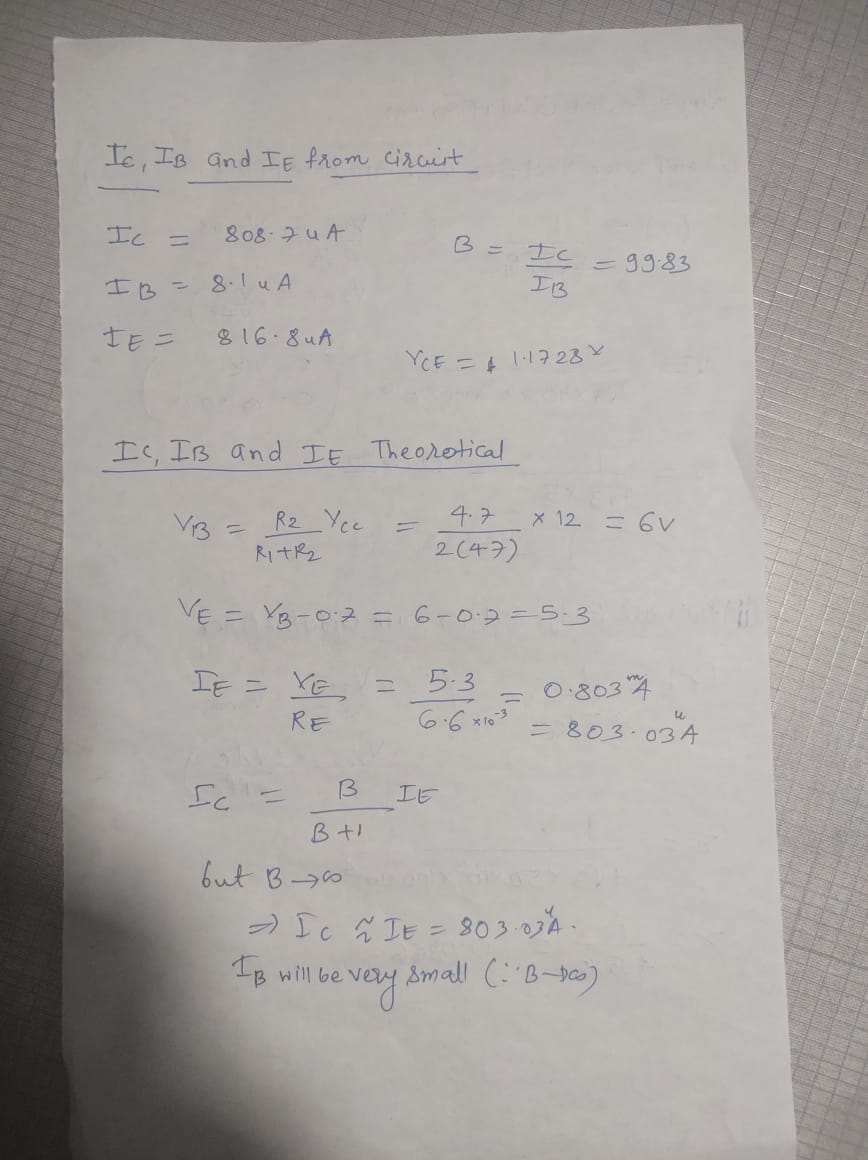 Ic, IB and IE from circuit
Ic = 808.7uA
B = Ic/IB = 99.83
IB = 8.1uA
IE = 816.8uA
VCE = 1.1728V
Ic, IB and IE Theoretical
VB = R2/R1+R2 Vcc = 4.7/2(47) x 12 = 6V
VE = VB-0.7 = 6-0.7=5.3
IE = VE/RE = 5.3/6.6x10-3 = 0.803mA
= 803.03uA
Ic = B/B+1 IE
but B→∞
⇒ Ic ≈ IE = 803.03uA.
IB will be very small (∵B→∞)